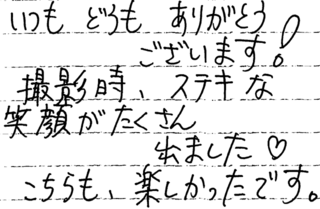 いつも どうも ありがとう
ございます!
撮影時、ステキな
笑顔がたくさん
出ました♡
こちらも、楽しかったです。